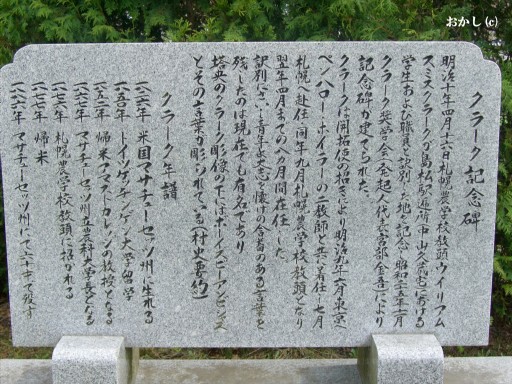 おかし (c)
クラーク記念碑
明治十年四月十六日札幌農学校教頭ウイリアム
スミスクラークが島松駅逓所中山久蔵宅における
学生および職員と訣別した地を記念し昭和二十五年十一月
クラーク奨学会(発起人代表宮部金吾)により
記念碑が建てられた。
クラークは開拓使の招きにより明治九年六月東京へ
ペンハロー ホイラーの二教師と共に着任し七月
札幌へ赴任 同年九月札幌農学校教頭となり
翌年四月までの八ヵ月間在任した
訣別にさいし青年よ大志を懐けの含蓄のある言葉を
残したのは現在でも有名であり
塔央のクラーク彫像の下にはボイズビーアンビシャス
とその言葉が彫られている(村史要約)
クラーク年譜
一八二六年 米国マサチューセッツ州に生れる
一八五〇年 ドイツゲッチンゲン大学留学
一八五二年 帰米アマストカレッジの教授となる
一八六七年 マサチューセッツ州立農科大学長となる
一八七六年 札幌農学校教頭に招かれる
一八七七年 帰米
一八八六年 マサチューセッツ州にて六十才で歿す